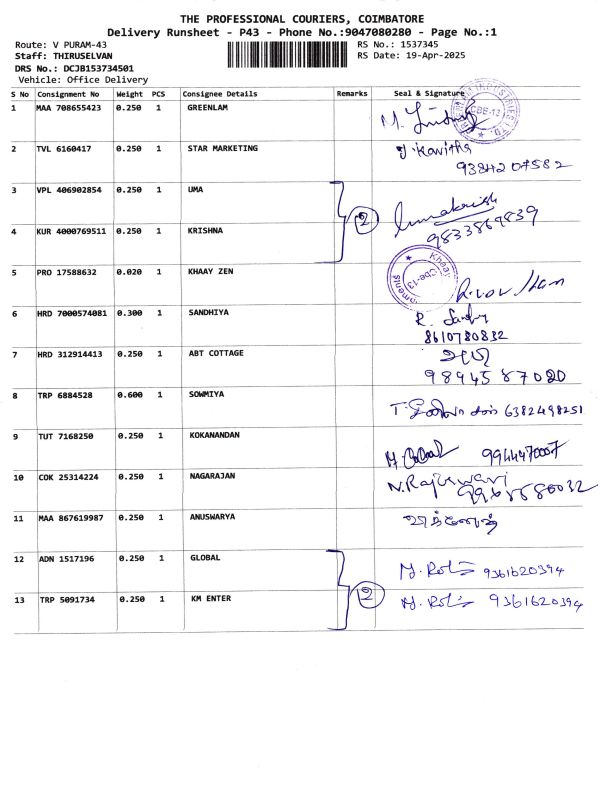 THE PROFESSIONAL COURIERS, COIMBATORE
Delivery Runsheet - P43 - Phone No.:9047080280 - Page No.:1
Route: V PURAM-43 RS No.: 1537345
Staff: THIRUSELVAN RS Date: 19-Apr-2025
DRS No.: DCJB153734501
Vehicle: Office Delivery
S No Consignment No Weight PCS Consignee Details Remarks Seal & Signature
1 MAA 708655423 0.250 1 GREENLAM M.
CBE-13
2 TVL 6160417 0.250 1 STAR MARKETING J. Kavitha
9384207582
3 VPL 406902854 0.250 1 UMA
2
4 KUR 4000769511 0.250 1 KRISHNA 9833869839
5 PRO 17588632 0.020 1 KHAAY ZEN
Khaay
Cbe-13
6 HRD 7000574081 0.300 1 SANDHIYA R.
8610780832
7 HRD 312914413 0.250 1 ABT COTTAGE
9894587020
8 TRP 6884528 0.600 1 SOWMIYA 6382498251
9 TUT 7168250 0.250 1 KOKANANDAN 9944470007
10 COK 25314224 0.250 1 NAGARAJAN N. Rajeswari
11 MAA 867619987 0.250 1 ANUSWARYA
12 ADN 1517196 0.250 1 GLOBAL 9361620394
2
13 TRP 5091734 0.250 1 KM ENTER 9361620394